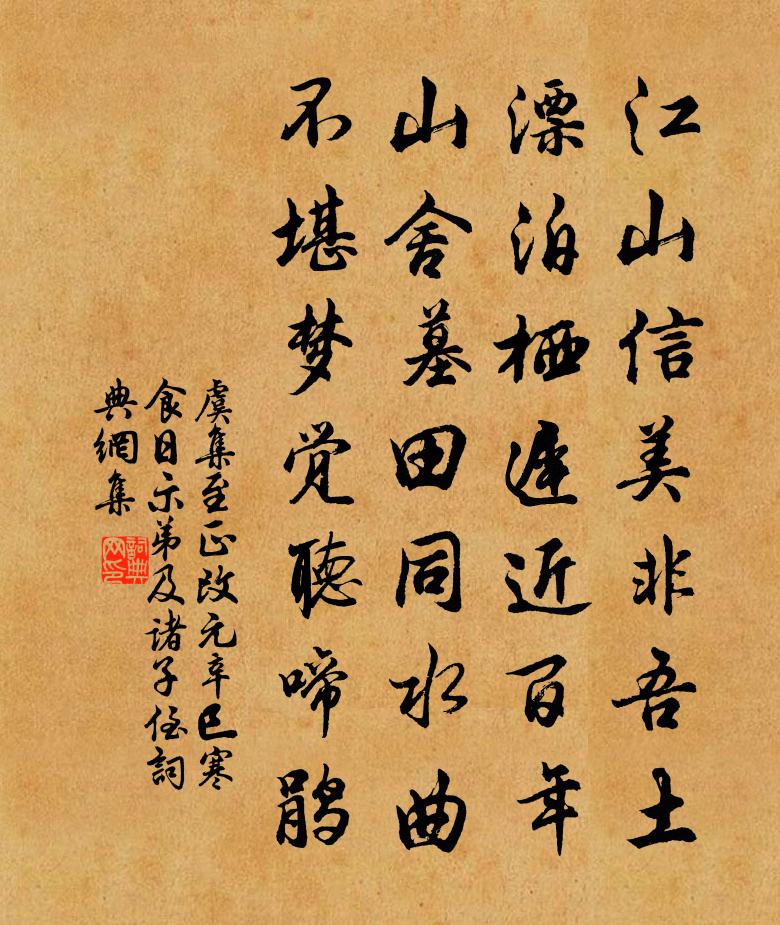 江山信美非吾土
漂泊栖遲近百年
山舍墓田同水曲
不堪梦觉聽啼鹃
虞集至正改元辛巳寒
食日示弟及諸子侄詞
典網集
詞典
网印